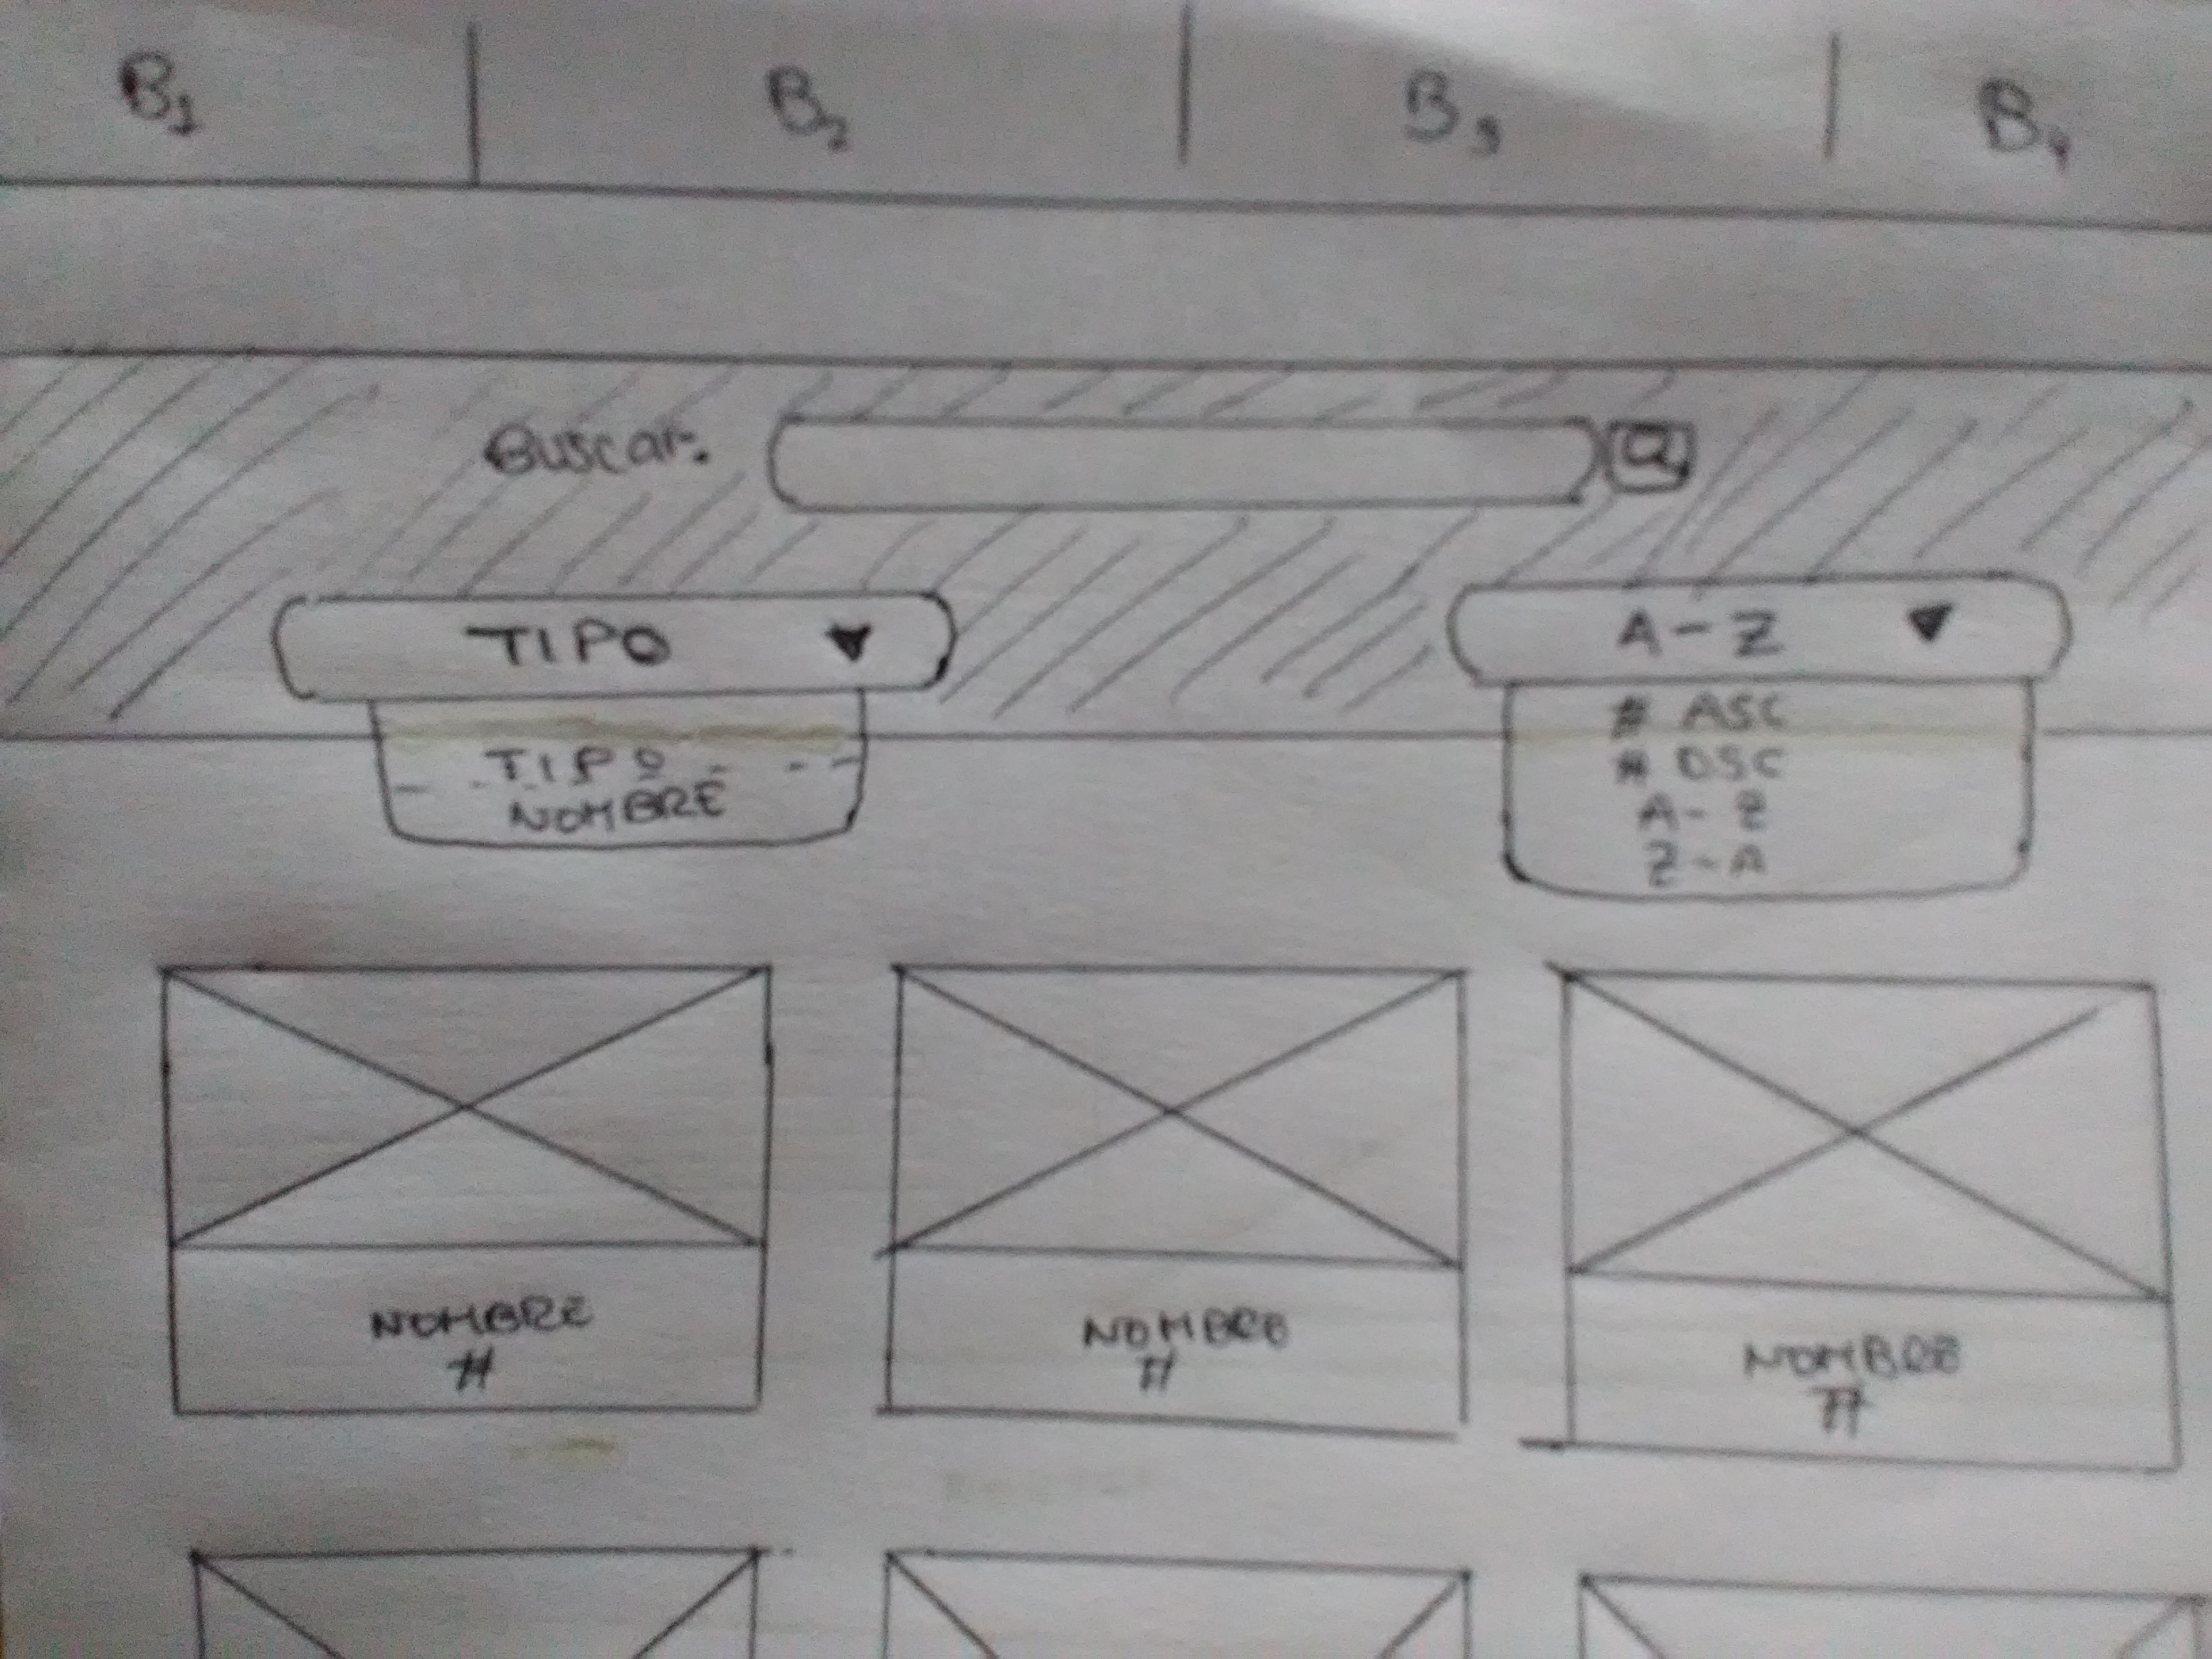 B1 B2 B3 B4
Buscar:
TIPO ▼ A-Z ▼
TIPO
NOMBRE
# ASC
# DSC
A-Z
Z-A
NOMBRE
#
NOMBRE
#
NOMBRE
#